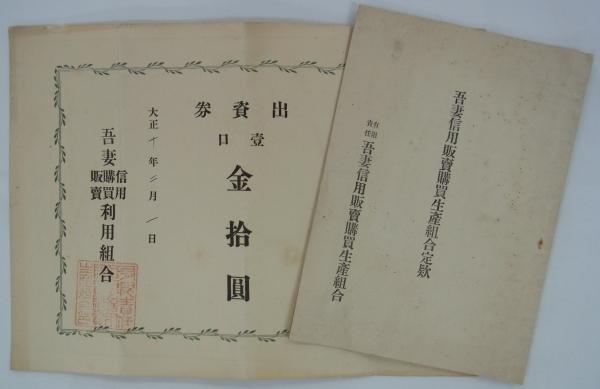 出資券
壹口
金拾圓
大正十年二月一日
吾妻信用購買販賣利用組合
吾妻信用販賣購買生產組合定款
有限責任吾妻信用販賣購買生產組合